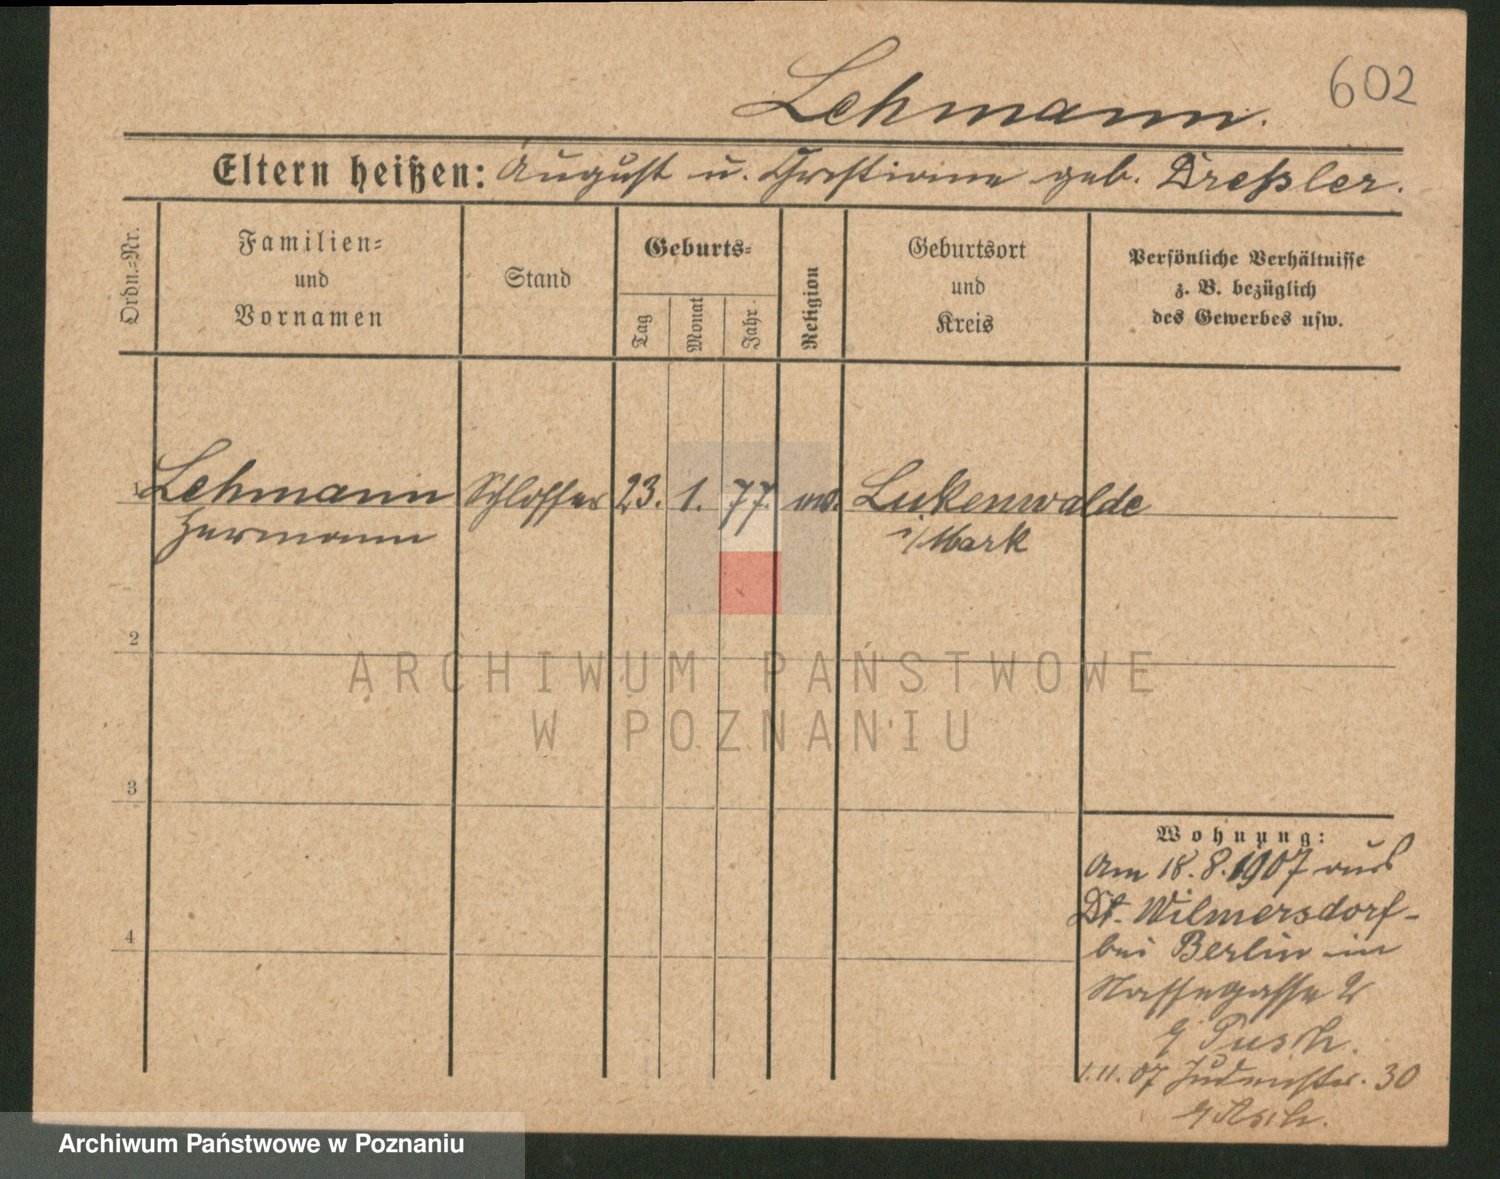 602
Lehmann.
Eltern heißen: August u. Christiane geb. Dreßler.
Ordn.-Nr.
Familien-
und
Vornamen
Stand
Geburts-
Tag
Monat
Jahr
Religion
Geburtsort
und
Kreis
Persönliche Verhältnisse
z. B. bezüglich
des Gewerbes usw.
1 Lehmann Schlosser 23. 1. 77. ev. Lukenwalde
Hermann i/Mark
2
ARCHIWUM PAŃSTWOWE
W POZNANIU
3
4
Wohnung:
Am 18.8.1907 aus
Dt. Wilmersdorf-
bei Berlin in
Nassegasse 2
Pusch.
1.11.07 Judenstr. 30
Archiwum Państwowe w Poznaniu